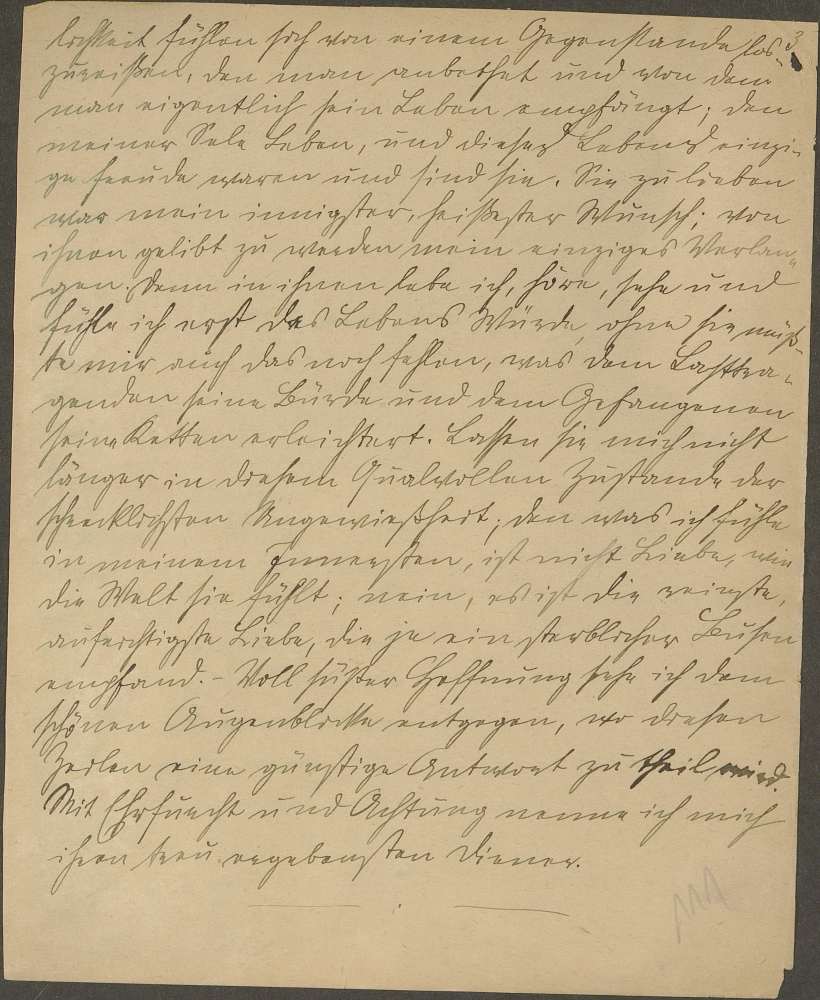 3
lichkeit fühlen sich von einem Gegenstande los-
zureißen, den man anbethet und von dem
man eigentlich sein Leben empfängt; den
meiner Sele Leben, und dieses Lebens einzi-
ge Freude waren und sind sie. Sie zu lieben
war mein innigster, heißester Wunsch; von
ihnen gelibt zu werden mein einziges Verlan-
gen. Denn in ihnen lebe ich, höre, sehe und
fühle ich erst des Lebens Würde, ohne sie müß-
te mir auch das noch fehlen, was dem Lasttra-
genden seine Bürde und dem Gefangenen
seine Ketten erleichtert. Lassen sie mich nicht
länger in diesem Qualvollen Zustande der
schrecklichsten Ungewißheit; den was ich fühle
in meinem Innersten, ist nicht Liebe, wie
die Welt sie fühlt; nein, es ist die reinste,
aufrichtigste Liebe, die je ein sterblicher Busen
empfand. – Voll süßer Hoffnung sehe ich dem
schönen Augenblicke entgegen, wo diesen
Zeilen eine günstige Antwort zu theil wird.
Mit Ehrfurcht und Achtung nenne ich mich
ihren treu ergebensten Diener.
MA